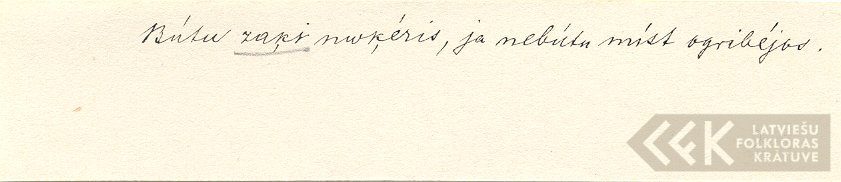 Bútu zaķi nuķéris, ja nebútu míst ogribéjos.
LATVIEŠU
FOLKLORAS
KRĀTUVE